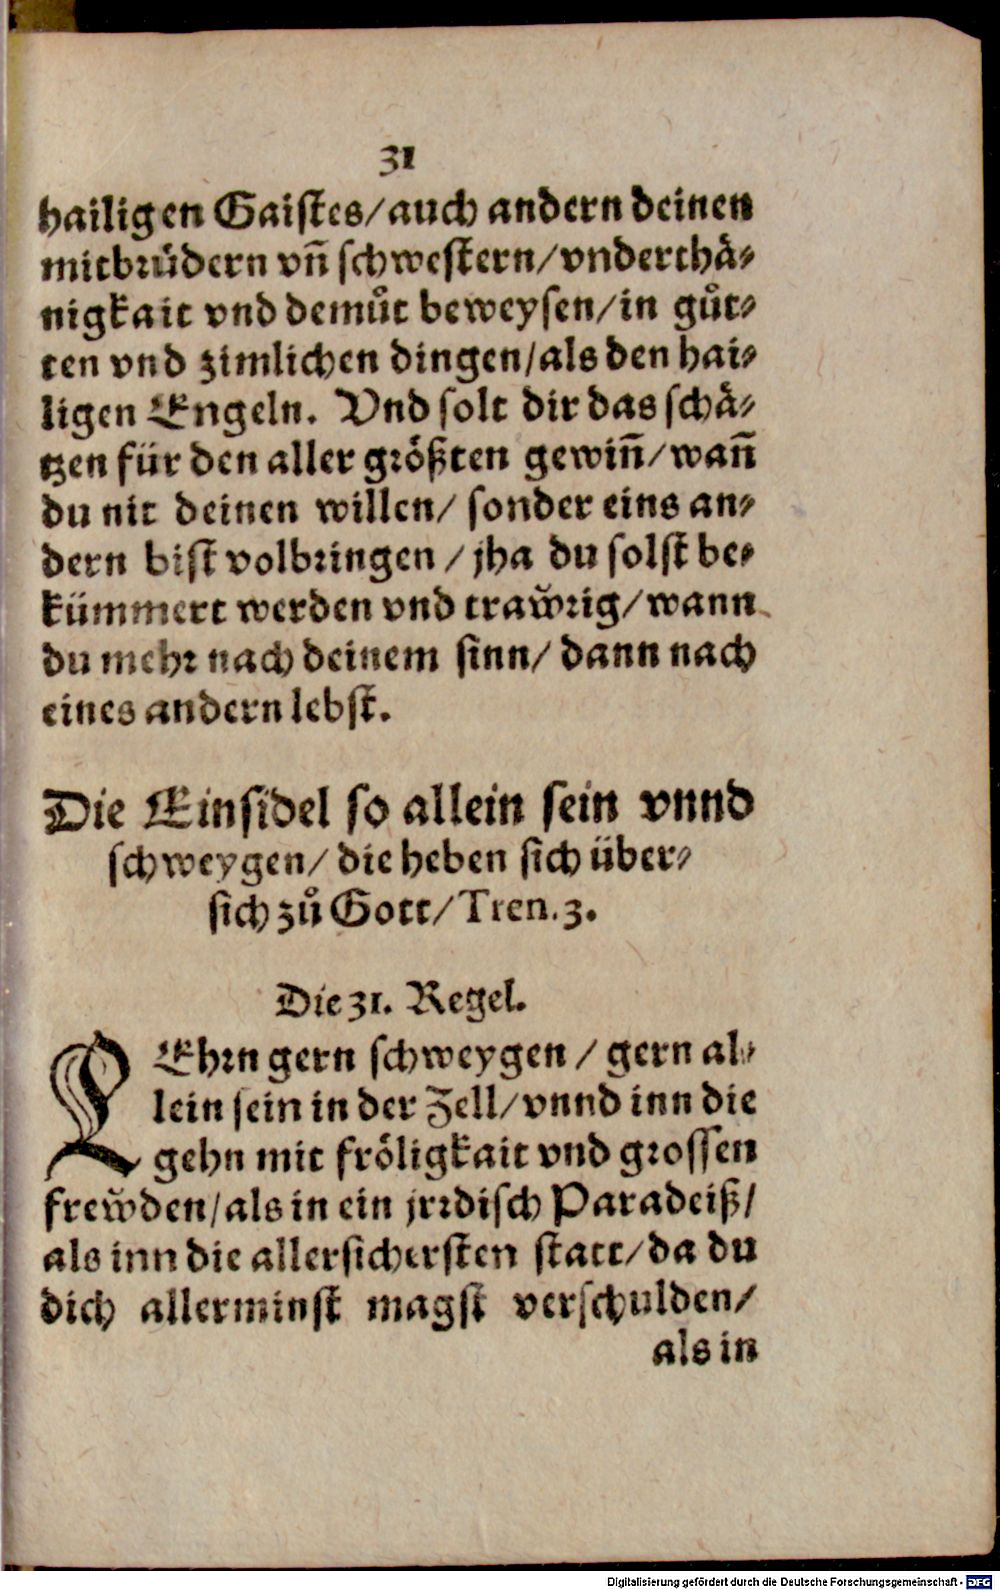 31
hailigen Gaistes/auch andern deinen
mitbruͤdern vñ schwestern/vnderthaͤ⸗
nigkait vnd demuͦt beweysen/in guͦt⸗
ten vnd zimlichen dingen/als den hai⸗
ligen Engeln. Vnd solt dir das schaͤ⸗
tzen für den aller groͤßten gewiñ/wañ
du nit deinen willen/ sonder eins an⸗
dern bist volbringen / jha du solst be⸗
kümmert werden vnd traẘrig/wann
du mehr nach deinem sinn/ dann nach
eines andern lebst.
Die Einsidel so allein sein vnnd
schweygen/ die heben sich über⸗
sich zuͦ Gott/Tren.3.
Die 31. Regel.
LEhrn gern schweygen / gern al⸗
lein sein in der Zell/vnnd inn die
gehn mit froͤligkait vnd grossen
freẘden/als in ein jrrdisch Paradeiß/
als inn die allersichersten statt/da du
dich allerminst magst verschulden/
als in
Digitalisierung gefördert durch die Deutsche Forschungsgemeinschaft - DFG